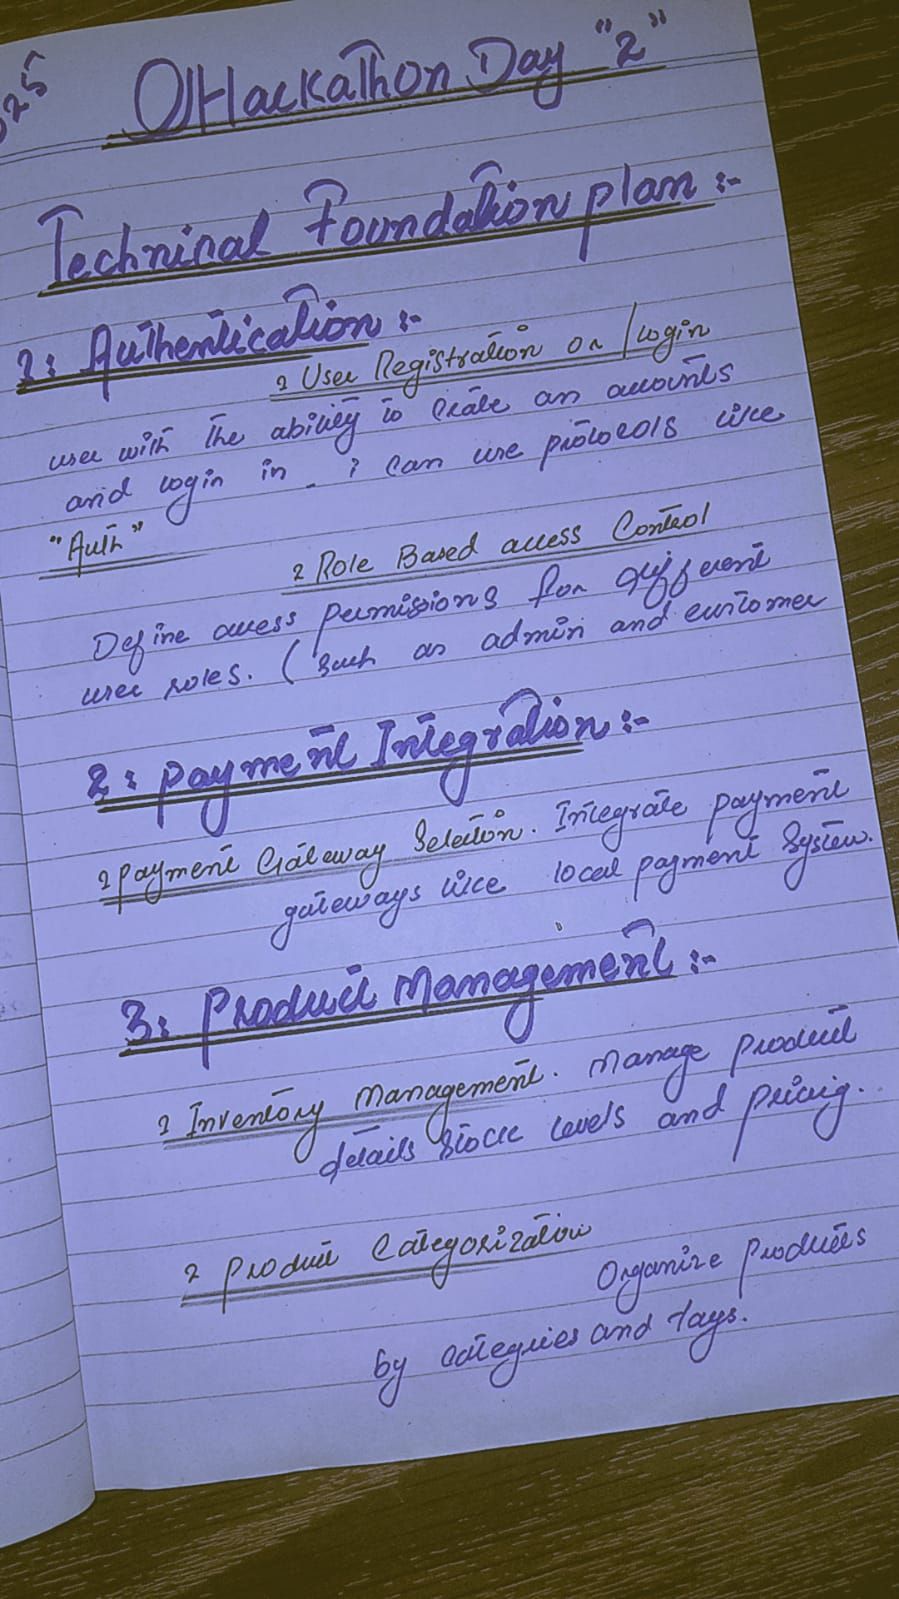 025
Hackathon Day "2"
Techninal Foundation plan :-
1: Authentication :-
2 User Registration or / login
user with the ability to Crate an accounts
and login in _ i can use protocols like
"Auth"
2 Role Based access Control
Define access permissions for different
user roles. ( Such as admin and customer
2: Payment Integration :-
2 Payment Gateway Selection. Integrate payment
gateways like local payment System.
3: Product Management :-
2 Inventory Management. Manage product
details stock levels and pricing.
2 Product Categorization
Organize products
by categries and tags.